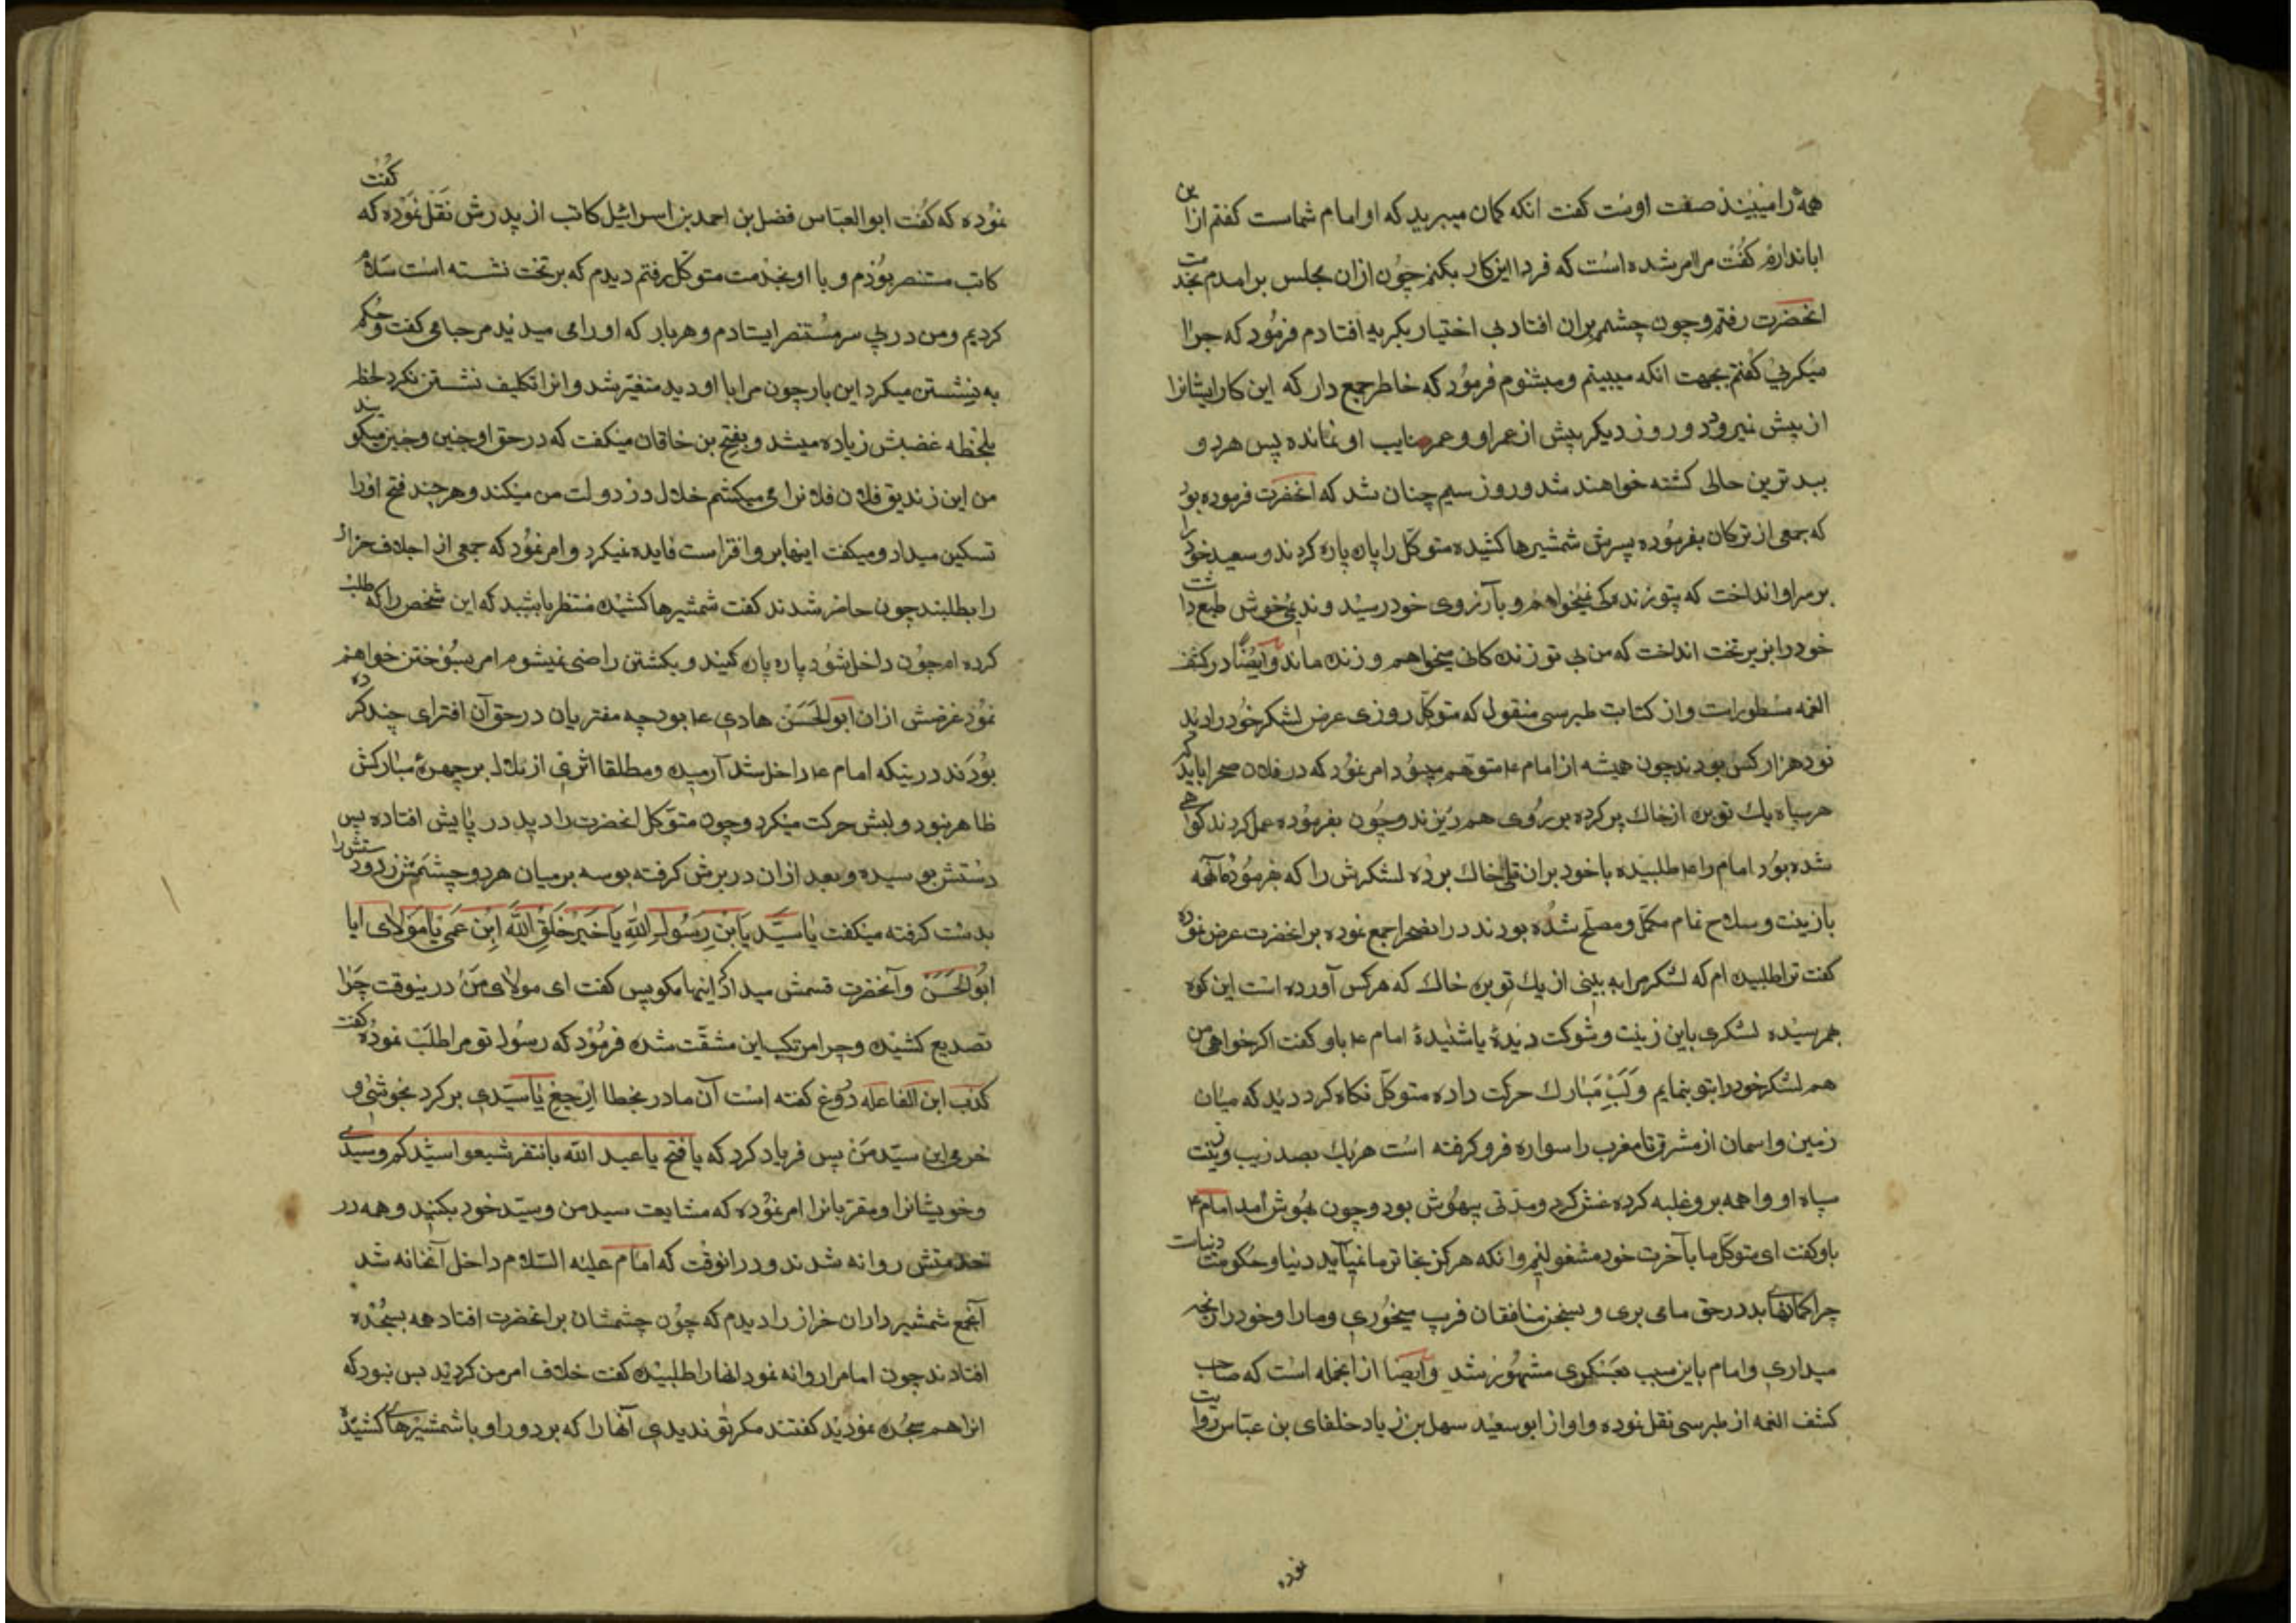 همه را میبینند صفت اوست گفت انکه کمان میبرید که او امام شماست کفتم ازاین
ابا ندارم کفت مرا امر شده است که فردا این کار بکنم چون ازان مجلس برامدم بخدمت
انحضرت رفتم و چون چشمم بران افتاد بی اختیار بکریه افتادم فرمود که چرا
میکریی کفتم بجهت انکه میبینم و میشنوم فرمود که خاطر جمع دار که این کار ایشانرا
از پیش نمیرود و دو روز دیکر بیش از عمر او و عمر نایب او نمانده پس هر دو
ببدترین حالی کشته خواهند شد و روز سیم چنان شد که انحضرت فرموده بود
که جمعی از ترکان بفرموده پسرش شمشیرها کشیده متوکل را پاره پاره کردند و سعید خود را
بر سر او انداخت که بتو زندکی نمیخواهم و بآرزوی خود رسید و ندیمی خوش طبع داشت
خود را بزیر تخت انداخت که من بی تو زنده کانی میخواهم و زنده ماند وایضا در کشف
الغمه مسطورات و از کتاب طبرسی منقول که متوکل روزی عرض لشکر خود را دید
نود هزار کس بودند چون همیشه از امام ع متوهم میبود امر نمود که در فلان صحرا باید که
هر سپاه یک توبره از خاک پر کرده بر روی هم ریزند و چون بفرموده عمل کردند کوهی
شده بود امام را ع طلبیده با خود بران تل خاک برده لشکرش را که بفرموده آنهمه
بازینت و سلاح تمام مکمل و مصلح شده بودند درانصحرا جمع نموده بر انحضرت عرض نموده
کفت ترا طلبیده ام که لشکر مرا به بینی از یک توبره خاک که هر کس آورده است این کوه
بهم رسیده لشکری باین زینت و شوکت دیدۀ یا شنیدۀ امام ع باو کفت اکر خواهی من
هم لشکر خود را بتو بنمایم و لب مبارک حرکت داده متوکل نکاه کرد دید که میان
زمین و اسمان از مشرق تا مغرب را سواره فرو کرفته است هر یک بصد زیب و زینت
سپاه او واهمه برو غلبه کرده غش کرد و مدتی بیهوش بود و چون بهوش آمد امام ع
باو کفت ای متوکل ما بآخرت خود مشغولیم وانکه هرکز بخاطر ما نمیآید دنیا و حکومت دنیاست
چرا کمانهای بد در حق ما می بری و بسخن منافقان فریب میخوری و ما را و خود را رنجه
میداری و امام باین سبب بعسکری مشهور شد وایضا از انجمله است که صاحب
کشف الغمه از طبرسی نقل نموده و او از ابو سعید سهل بن زیاد خلفای بن عباس روایت
نموده
نموده که کفت ابو العباس فضل بن احمد بن اسرائیل کاتب از پدرش نقل نموده که کفت
کاتب مستنصر بودم و با او بخدمت متوکل رفتم دیدم که بر تخت نشسته است سلام
کردیم و من در پی سر مستنصر ایستادم و هر بار که او را می دیدید مرحبا می کفت و حکم
به نشستن میکرد این بار چون مرا با او دید متغیر شد و انرا تکلیف نشستن نکرد لحظه
بلحظه غضبش زیاده میشد و بفتح بن خاقان میکفت که در حق او چنین و چنین میکویند
من این زندیق فلان فلانرا می میکشم خلال در دولت من میکند و هر چند فتح او را
تسکین میداد و میکفت اینها برو افتراست فایده نمیکرد و امر نمود که جمعی از اجلاف خزاز
را بطلبند چون حاضر شدند کفت شمشیرها کشیده منتظر باشید که این شخص را که طلب
کرده ام چون داخل شود پاره پاره کنید و بکشتن راضی نمیشوم امر بسوختن خواهم
نمود غرضش ازان ابو الحسن هادی ع بود چه مفتریان در حق آن افترای چند کرده
بودند در ینکه امام ع داخل شد آرمیده و مطلقا اثری از ملال بر چهرۀ مبارکش
ظاهر نبود و لبش حرکت میکرد و چون متوکل انحضرت را دید در پایش افتاده پس
دستش بوسیده و بعد ازان در برش کرفته بوسه بر میان هر دو چشمش زد و دستش را
بدست کرفته میکفت یا سید یا بن رسول الله یا خیر خلق الله ابن عمی یا مولای ایا
ابو الحسن و آنحضرت قسمش میداد که اینها مکو پس کفت ای مولای من درینوقت چرا
تصدیع کشیده و چرا مرتکب این مشقت شده فرمود که رسول تو مرا طلب نموده کفت
کذب ابن الفاعله دروغ کفته است آن مادر بخطا ارجع یا سیدی بر کرد بخوشی و
خرمی این سید من پس فریاد کرد که یا فتح یا عبد الله یا نتفر شیعوا سیدکم و سیدی
و خویشانرا و مقربانرا امر نموده که مشایعت سید من و سید خود بکنید و همه در
خدمتش روانه شدند و درانوقت که امام علیه السلام داخل آنخانه شد
آنجمع شمشیرداران خزاز را دیدم که چون چشمشان بر انحضرت افتاد همه بسجده
افتادند چون امام را روانه نمود انها را طلبیده کفت خلاف امر من کردید بس نبود که
انرا هم سجده نمودید کفتند مکر تو ندیدی آنها را که بر دور او با شمشیرهای کشیده